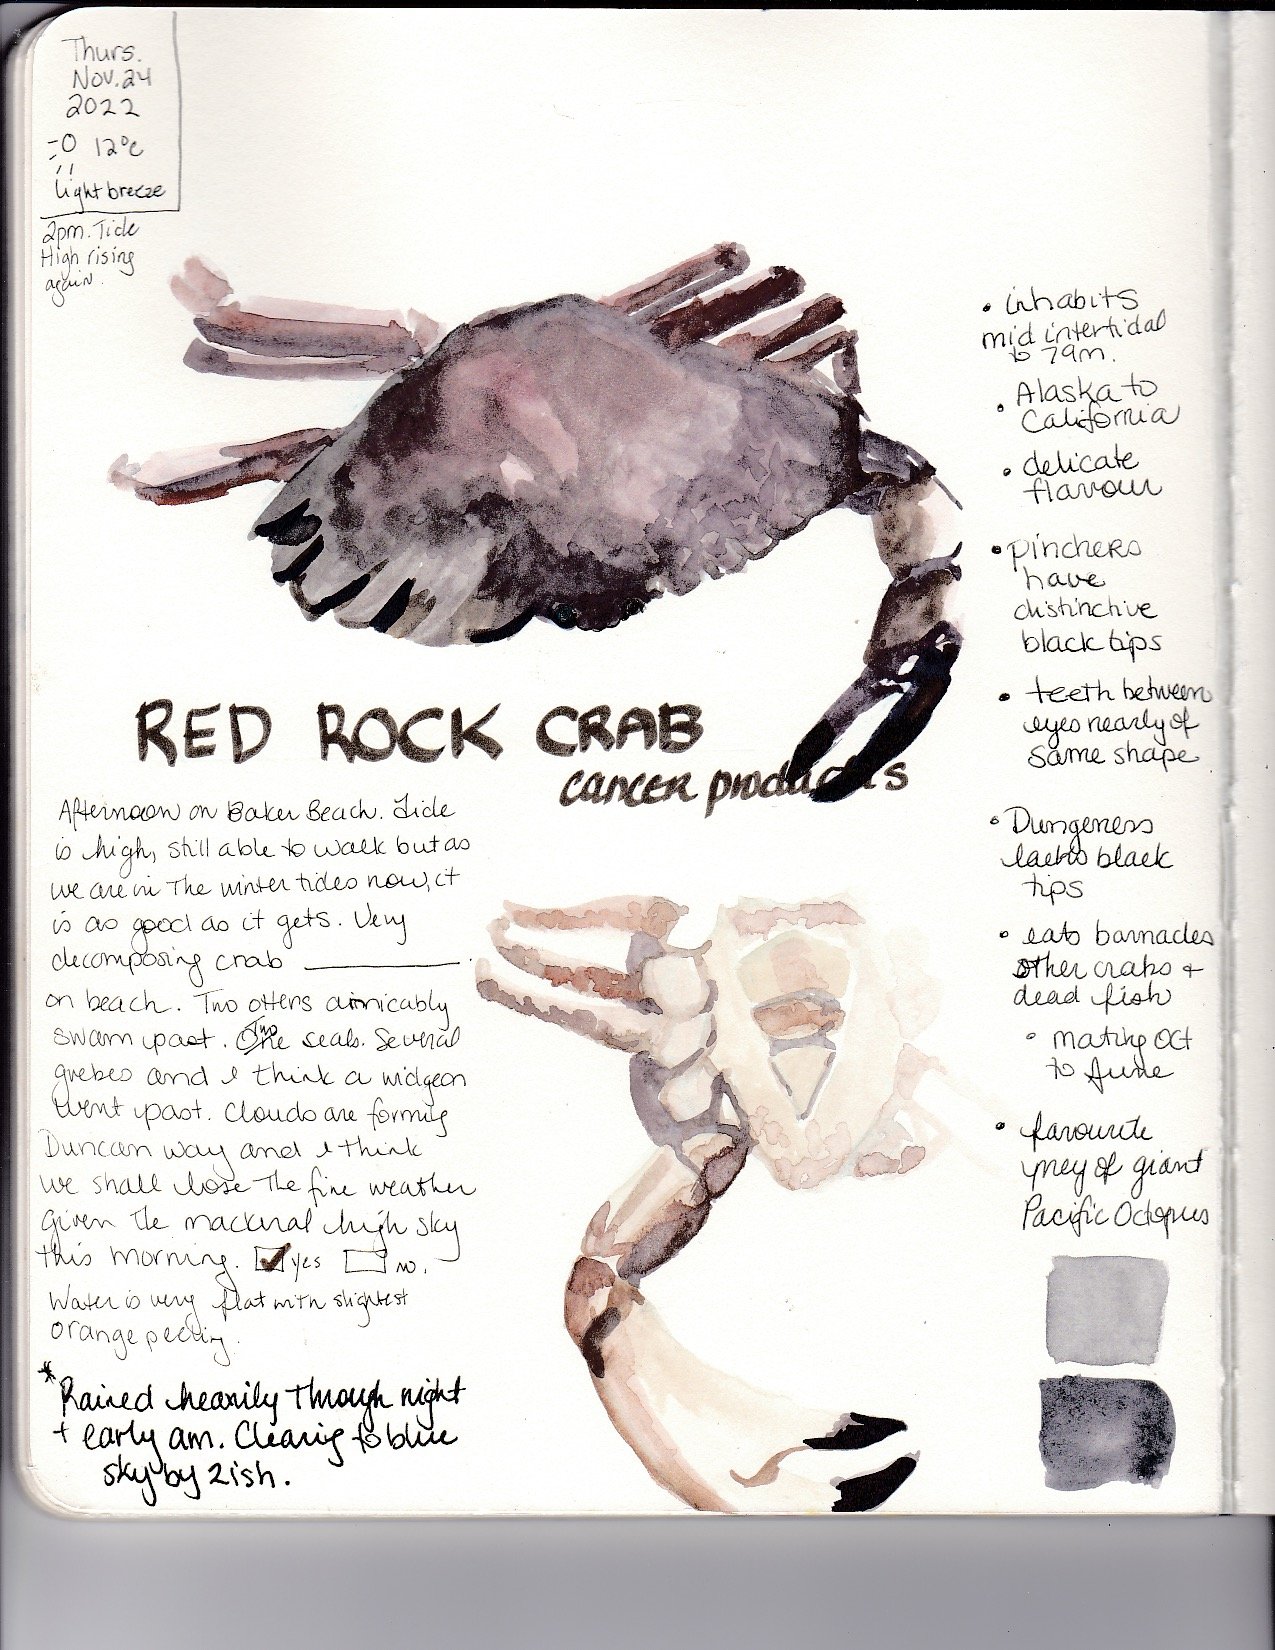 Thurs.
Nov. 24
2022
12°c
light breeze
2pm. Tide
High rising
again.
RED ROCK CRAB
cancer productus
Afternoon on Baker Beach. Tide
is high, still able to walk but as
we are in the winter tides now, it
is as good as it gets. Very
decomposing crab
on beach. Two otters amicably
swam past. Two seals. Several
grebes and I think a widgeon
went past. Clouds are forming
Duncan way and I think
we shall lose the fine weather
given the mackeral high sky
this morning. yes no.
Water is very flat with slightest
orange peeling.
* Rained heavily through night
+ early am. Clearing to blue
sky by 2ish.
• inhabits
mid intertidal
to 79m.
• Alaska to
California
• delicate
flavour
• pinchers
have
distinctive
black tips
• teeth between
eyes nearly of
same shape
• Dungeness
lacks black
tips
• eats barnacles
other crabs +
dead fish
• mating Oct
to June
• favourite
prey of giant
Pacific Octopus